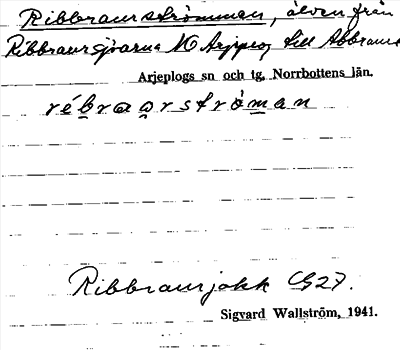 Ribbraurströmmen, älven från
Ribbraursjöarna N Arjeplog till Abbraure
Arjeplogs sn och tg, Norrbottens län.
rébraarstróman
Ribbraurjokk G27.
Sigvard Wallström, 1941.